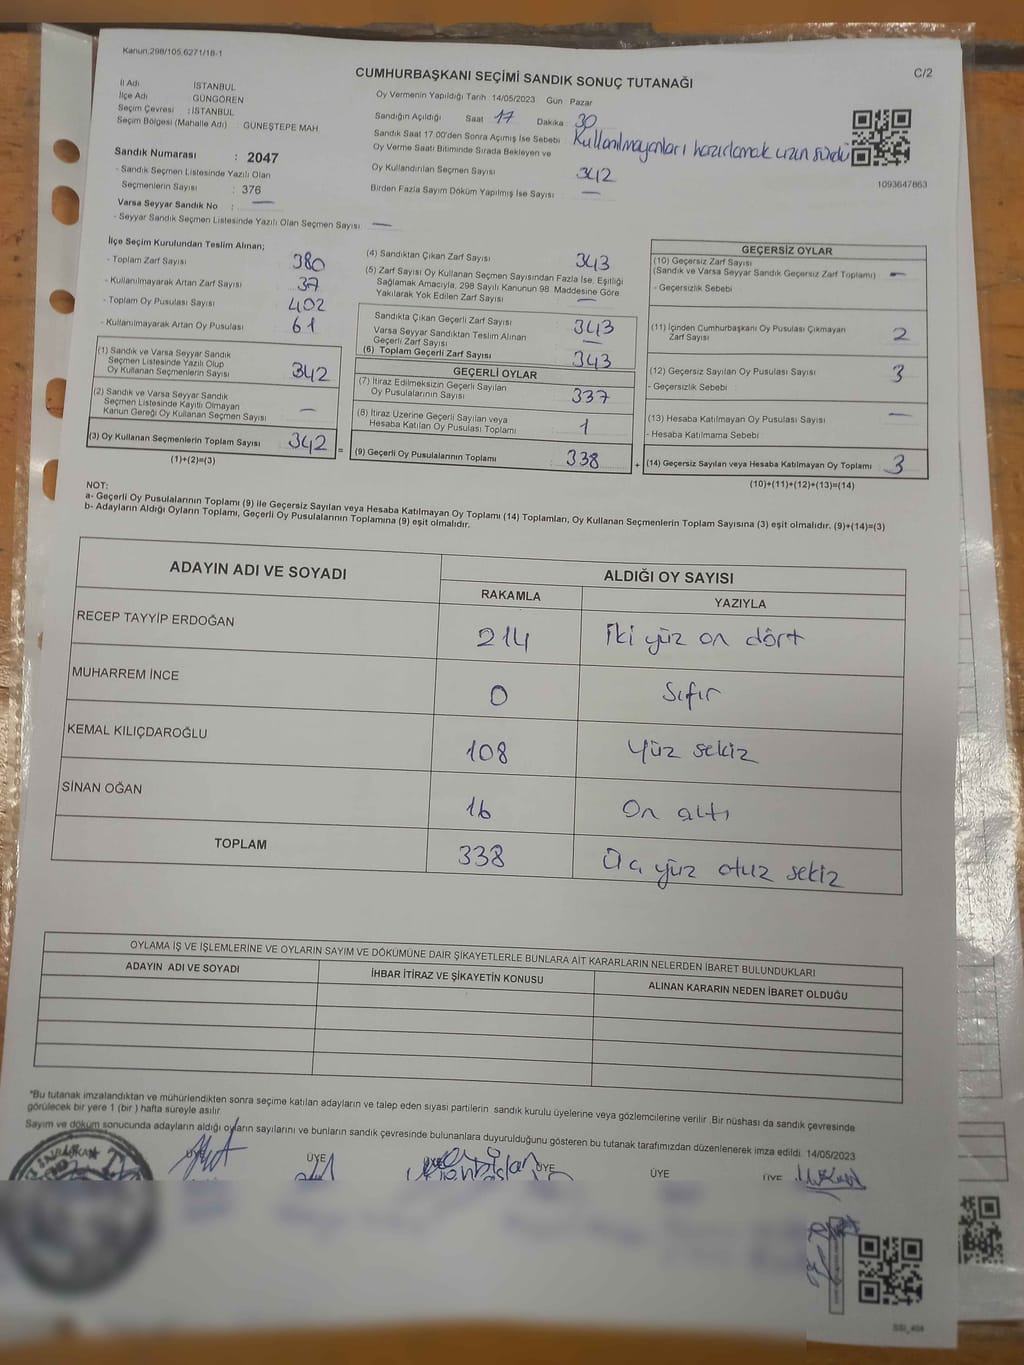 Kanun.298/105,6271/18-1
C/2
CUMHURBAŞKANI SEÇİMİ SANDIK SONUÇ TUTANAĞI
İl Adı İSTANBUL
İlçe Adı GÜNGÖREN
Seçim Çevresi : İSTANBUL
Seçim Bölgesi (Mahalle Adı) : GÜNEŞTEPE MAH
Sandık Numarası : 2047
- Sandık Seçmen Listesinde Yazılı Olan
Seçmenlerin Sayısı : 376
Varsa Seyyar Sandık No : —
- Seyyar Sandık Seçmen Listesinde Yazılı Olan Seçmen Sayısı : —
Oy Vermenin Yapıldığı Tarih : 14/05/2023 Gün Pazar
Sandığın Açıldığı Saat 17 Dakika 30
Sandık Saat 17 00'den Sonra Açımış İse Sebebi Kullanılmayanları hazırlamak uzun sürdü
Oy Verme Saati Bitiminde Sırada Bekleyen ve
Oy Kullandırılan Seçmen Sayısı 342
Birden Fazla Sayım Döküm Yapılmış İse Sayısı —
1093647863
İlçe Seçim Kurulundan Teslim Alınan;
- Toplam Zarf Sayısı 380
- Kullanılmayarak Artan Zarf Sayısı 37
- Toplam Oy Pusulası Sayısı 402
- Kullanılmayarak Artan Oy Pusulası 61
(1) Sandık ve Varsa Seyyar Sandık
Seçmen Listesinde Yazılı Olup
Oy Kullanan Seçmenlerin Sayısı 342
(2) Sandık ve Varsa Seyyar Sandık
Seçmen Listesinde Kayıtlı Olmayan
Kanun Gereği Oy Kullanan Seçmen Sayısı —
(3) Oy Kullanan Seçmenlerin Toplam Sayısı 342
(1)+(2)=(3)
(4) Sandıktan Çıkan Zarf Sayısı 343
(5) Zarf Sayısı Oy Kullanan Seçmen Sayısından Fazla İse, Eşitliği
Sağlamak Amacıyla, 298 Sayılı Kanunun 98. Maddesine Göre
Yakılarak Yok Edilen Zarf Sayısı —
Sandıkta Çıkan Geçerli Zarf Sayısı 343
Varsa Seyyar Sandıktan Teslim Alınan
Geçerli Zarf Sayısı —
(6) Toplam Geçerli Zarf Sayısı 343
GEÇERLİ OYLAR
(7) İtiraz Edilmeksizin Geçerli Sayılan
Oy Pusulalarının Sayısı 337
(8) İtiraz Üzerine Geçerli Sayılan veya
Hesaba Katılan Oy Pusulası Toplamı 1
= (9) Geçerli Oy Pusulalarının Toplamı 338
GEÇERSİZ OYLAR
(10) Geçersiz Zarf Sayısı —
(Sandık ve Varsa Seyyar Sandık Geçersiz Zarf Toplamı)
- Geçersizlik Sebebi
(11) İçinden Cumhurbaşkanı Oy Pusulası Çıkmayan
Zarf Sayısı 2
(12) Geçersiz Sayılan Oy Pusulası Sayısı 3
- Geçersizlik Sebebi :
(13) Hesaba Katılmayan Oy Pusulası Sayısı —
- Hesaba Katılmama Sebebi
+ (14) Geçersiz Sayılan veya Hesaba Katılmayan Oy Toplamı 3
(10)+(11)+(12)+(13)=(14)
NOT:
a- Geçerli Oy Pusulalarının Toplamı (9) ile Geçersiz Sayılan veya Hesaba Katılmayan Oy Toplamı (14) Toplamları, Oy Kullanan Seçmenlerin Toplam Sayısına (3) eşit olmalıdır. (9)+(14)=(3)
b- Adayların Aldığı Oyların Toplamı, Geçerli Oy Pusulalarının Toplamına (9) eşit olmalıdır.
ADAYIN ADI VE SOYADI ALDIĞI OY SAYISI
RAKAMLA YAZIYLA
RECEP TAYYİP ERDOĞAN 214 İki yüz on dört
MUHARREM İNCE 0 Sıfır
KEMAL KILIÇDAROĞLU 108 Yüz sekiz
SİNAN OĞAN 16 On altı
TOPLAM 338 Üç yüz otuz sekiz
OYLAMA İŞ VE İŞLEMLERİNE VE OYLARIN SAYIM VE DÖKÜMÜNE DAİR ŞİKAYETLERLE BUNLARA AİT KARARLARIN NELERDEN İBARET BULUNDUKLARI
ADAYIN ADI VE SOYADI İHBAR İTİRAZ VE ŞİKAYETİN KONUSU ALINAN KARARIN NEDEN İBARET OLDUĞU
*Bu tutanak imzalandıktan ve mühürlendikten sonra seçime katılan adayların ve talep eden siyasi partilerin sandık kurulu üyelerine veya gözlemcilerine verilir. Bir nüshası da sandık çevresinde
görülecek bir yere 1 (bir ) hafta süreyle asılır.
Sayım ve döküm sonucunda adayların aldığı oyların sayılarını ve bunların sandık çevresinde bulunanlara duyurulduğunu gösteren bu tutanak tarafımızdan düzenlenerek imza edildi. 14/05/2023
ÜYE ÜYE ÜYE ÜYE ÜYE